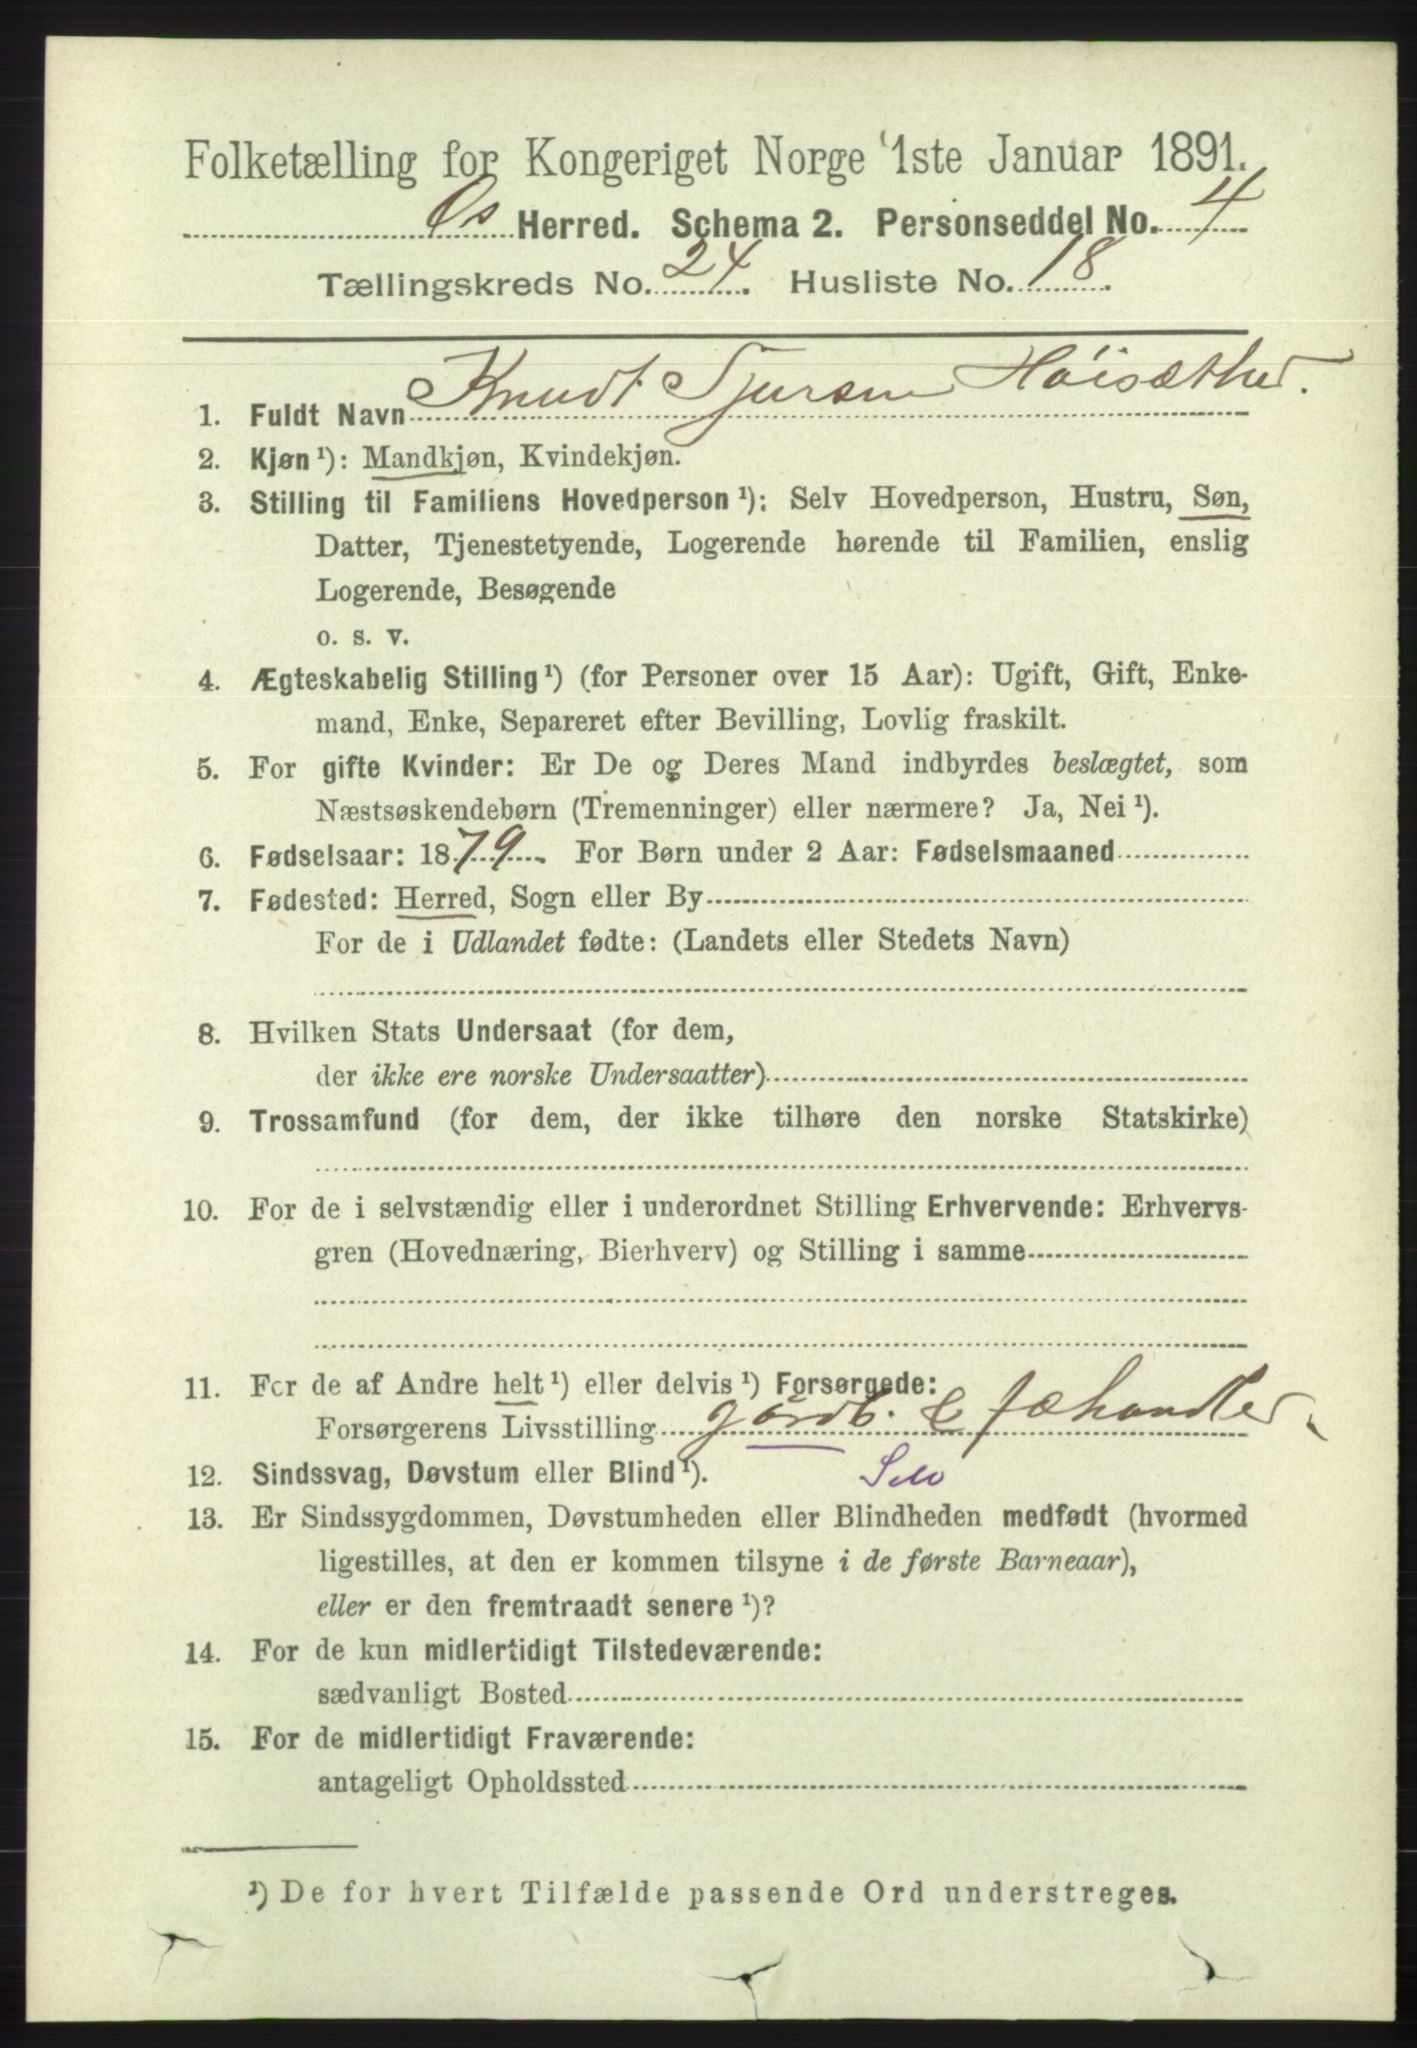 Folketælling for Kongeriget Norge 1ste Januar 1891.
Os Herred. Schema 2. Personseddel No. 4
Tællingskreds No. 24. Husliste No. 18.
1. Fuldt Navn Knudt Sjursen Höisæther.
2. Kjøn ¹): Mandkjøn, Kvindekjøn.
3. Stilling til Familiens Hovedperson ¹): Selv Hovedperson, Hustru, Søn,
Datter, Tjenestetyende, Logerende hørende til Familien, enslig
Logerende, Besøgende
o. s. v.
4. Ægteskabelig Stilling ¹) (for Personer over 15 Aar): Ugift, Gift, Enke-
mand, Enke, Separeret efter Bevilling, Lovlig fraskilt.
5. For gifte Kvinder: Er De og Deres Mand indbyrdes beslægtet, som
Næstsøskendebørn (Tremenninger) eller nærmere? Ja, Nei ¹).
6. Fødselsaar: 1879. For Børn under 2 Aar: Fødselsmaaned
7. Fødested: Herred, Sogn eller By
For de i Udlandet fødte: (Landets eller Stedets Navn)
8. Hvilken Stats Undersaat (for dem,
der ikke ere norske Undersaatter)
9. Trossamfund (for dem, der ikke tilhøre den norske Statskirke)
10. For de i selvstændig eller i underordnet Stilling Erhvervende: Erhvervs-
gren (Hovednæring, Bierhverv) og Stilling i samme
11. For de af Andre helt ¹) eller delvis ¹) Forsørgede:
Forsørgerens Livsstilling gårdb. & fæhandler
12. Sindssvag, Døvstum eller Blind ¹). Selv
13. Er Sindssygdommen, Døvstumheden eller Blindheden medfødt (hvormed
ligestilles, at den er kommen tilsyne i de første Barneaar),
eller er den fremtraadt senere ¹)?
14. For de kun midlertidigt Tilstedeværende:
sædvanligt Bosted
15. For de midlertidigt Fraværende:
antageligt Opholdssted
¹) De for hvert Tilfælde passende Ord understreges.